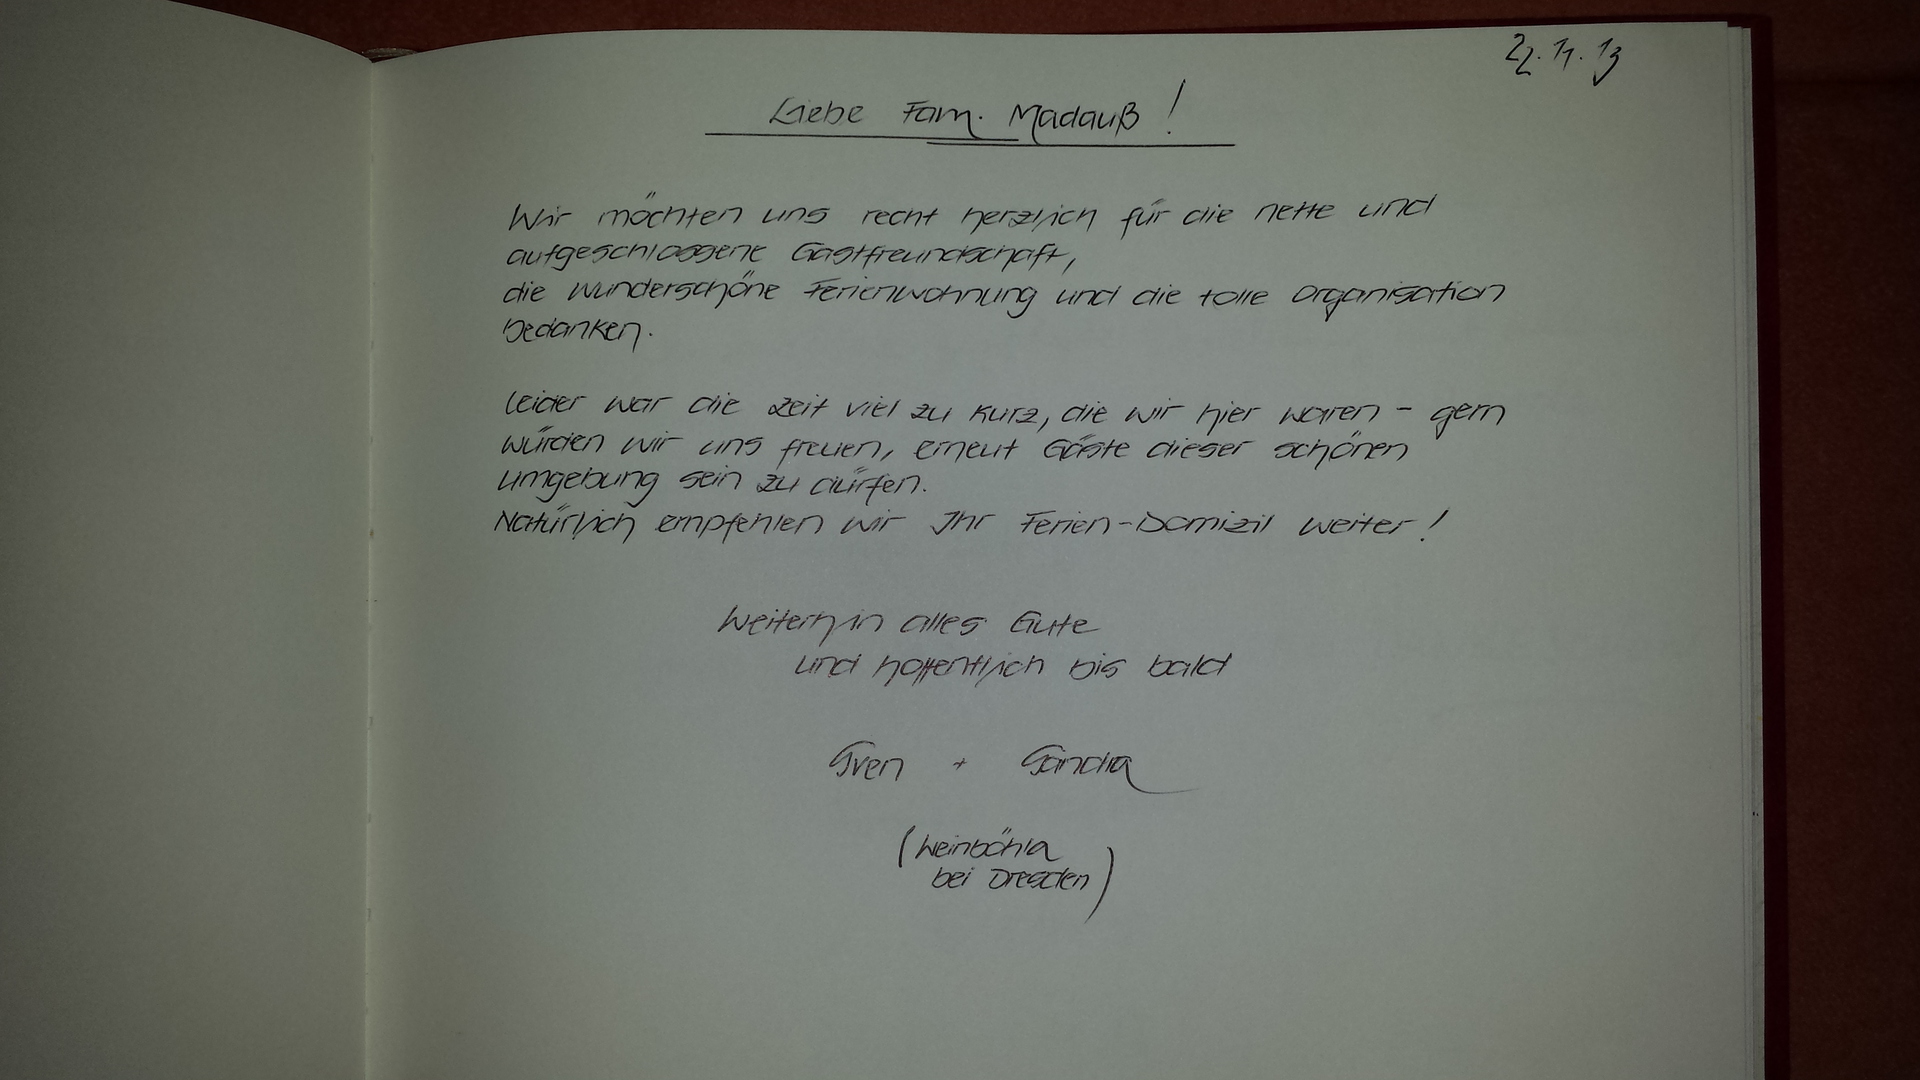 22.11.13
Liebe Fam. Madauß!
Wir möchten uns recht herzlich für die nette und
aufgeschlossene Gastfreundschaft,
die wunderschöne Ferienwohnung und die tolle Organisation
bedanken.
Leider war die Zeit viel zu kurz, die wir hier waren - gern
würden wir uns freuen, erneut Gäste dieser schönen
Umgebung sein zu dürfen.
Natürlich empfehlen wir Ihr Ferien-Domizil weiter!
Weiterhin alles Gute
und hoffentlich bis bald
Sven + Sandra
(Weinböhla
bei Dresden)